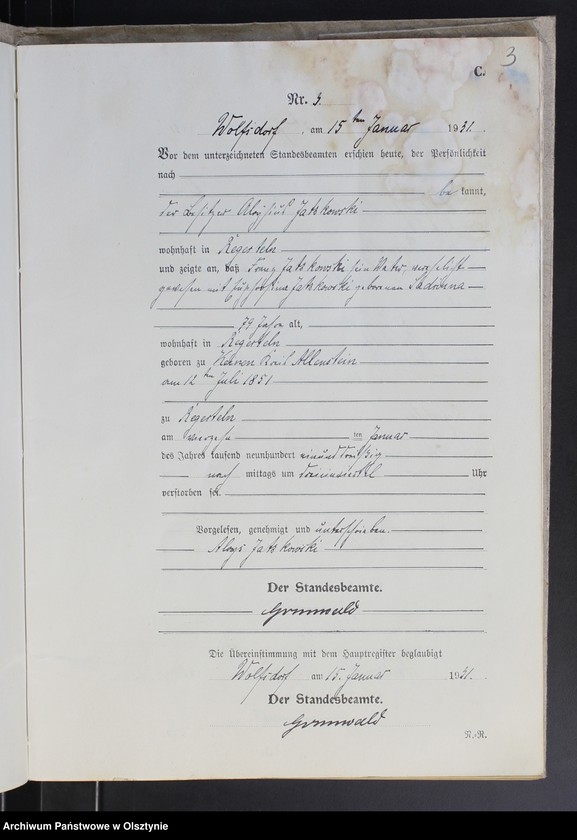 3
C.
Nr. 3.
Wolfsdorf, am 15ten Januar 1931.
Vor dem unterzeichneten Standesbeamten erschien heute, der Persönlichkeit
nach
bekannt,
der Besitzer Aloysius Jatzkowski
wohnhaft in Regerteln
und zeigte an, daß Franz Jatzkowski sein Vater, verehelicht
gewesen mit Euphrosina Jatzkowski geborenen Sadrinna
79 Jahre alt,
wohnhaft in Regerteln
geboren zu Kreis Allenstein
am 12ten Juli 1851
zu Regerteln
am vierzehn ten Januar
des Jahres tausend neunhundert einunddreißig
nach mittags um dreieinviertel Uhr
verstorben sei.
Vorgelesen, genehmigt und unterschrieben.
Aloys Jatzkowski
Der Standesbeamte.
Grunwald
Die Übereinstimmung mit dem Hauptregister beglaubigt
Wolfsdorf am 15. Januar 1931.
Der Standesbeamte.
Grunwald
N.-R.
Archiwum Państwowe w Olsztynie